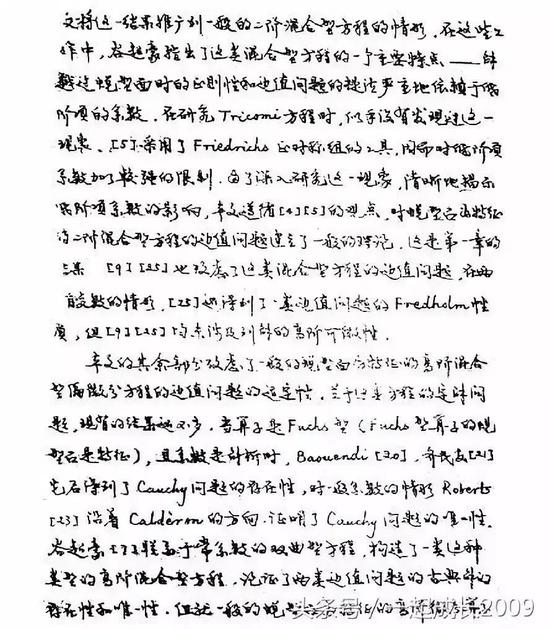 文将这一结果推广到一般的二阶混合型方程的情形. 在这些工
作中, 谷超豪指出了这类混合型方程的一个主要特点——解
越过蜕型面时的正则性和边值问题的提法严重地依赖于低
阶项的系数. 在研究Tricomi方程时, 似乎没有发现过这一
现象. [5]采用了Friedrichs正对称组的工具, 同时对低阶项
系数加了较强的限制. 为了深入研究这一现象, 清晰地揭示
低阶项系数的影响, 本文遵循[4][5]的观点, 对蜕型面为特征
的二阶混合型方程的边值问题建立了一般的理论. 这是第一章的
[9][25]也考虑了这类混合型方程的边值问题, 在两
自变数的情形, [25]还得到了一类边值问题的Fredholm性
质, 但[9][25]均未涉及到解的高阶可微性.
本文的其余部分考虑了一般的蜕型面为特征的高阶混合
型偏微分方程的边值问题的适定性. 关于这类方程的定解问
题, 现有的结果还不多. 当算子是Fuchs型(Fuchs型算子的蜕
型面是特征), 且系数是解析时, Baouendi[20], 齐民友[21]
先后得到了Cauchy问题的存在性, 对一般系数的情形Roberts
[23]沿着Calderon的方向, 证明了Cauchy问题的唯一性.
谷超豪[7]基于常系数的双曲型方程, 构造了一类这种
类型的高阶混合型方程, 论证了两类边值问题的古典解的
存在性和唯一性. 但就一般的蜕型
头条号/一起成长2009